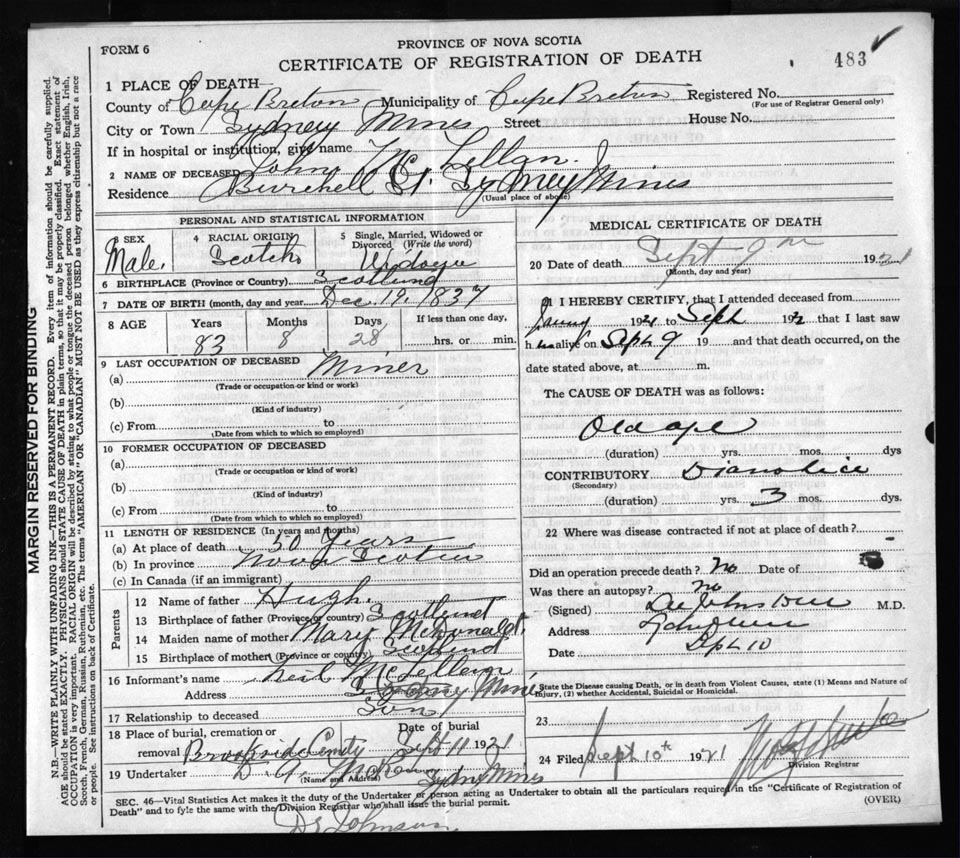 FORM 6
PROVINCE OF NOVA SCOTIA
CERTIFICATE OF REGISTRATION OF DEATH
483
1 PLACE OF DEATH
County of Cape Breton Municipality of Cape Breton Registered No.
(For use of Registrar General only)
City or Town Sydney Mines Street House No.
If in hospital or institution, give name
2 NAME OF DECEASED John McLellan.
Residence Burchell St. Sydney Mines
(Usual place of abode)
PERSONAL AND STATISTICAL INFORMATION
3 SEX 4 RACIAL ORIGIN 5 Single, Married, Widowed or Divorced (Write the word)
Male. Scotch
6 BIRTHPLACE (Province or Country) Scotland
7 DATE OF BIRTH (month, day and year) Dec. 12, 1837
8 AGE Years Months Days If less than one day,
83 8 28 hrs. or min.
9 LAST OCCUPATION OF DECEASED
(a) Miner
(Trade or occupation or kind or work)
(b)
(Kind of industry)
(c) From to
(Date from which to which so employed)
10 FORMER OCCUPATION OF DECEASED
(a)
(Trade or occupation or kind of work)
(b)
(Kind of industry)
(c) From to
(Date from which to which so employed)
11 LENGTH OF RESIDENCE (In years and months)
(a) At place of death 50 years
(b) In province Nova Scotia
(c) In Canada (if an immigrant)
Parents
12 Name of father Hugh.
13 Birthplace of father (Province or country) Scotland
14 Maiden name of mother Mary McDonald.
15 Birthplace of mother (Province or country) Scotland
16 Informant's name Neil McLellan
Address Sydney Mines
17 Relationship to deceased Son
18 Place of burial, cremation or removal Date of burial
Brookside Sept 11 1921
19 Undertaker D. A.
(Name and Address) Sydney Mines
MEDICAL CERTIFICATE OF DEATH
20 Date of death Sept 9 1921
(Month, day and year)
21 I HEREBY CERTIFY, that I attended deceased from
1921 to Sept 192 that I last saw
h alive on Sept 9 19 and that death occurred, on the
date stated above, at m.
The CAUSE OF DEATH was as follows:
Old age
(duration) yrs. mos. dys
CONTRIBUTORY
(Secondary)
(duration) yrs. 3 mos. dys.
22 Where was disease contracted if not at place of death?
Did an operation precede death? no Date of
Was there an autopsy? no
(Signed) M.D.
Address
Date Sept 10
State the Disease causing Death, or in death from Violent Causes, state (1) Means and Nature of
Injury, (2) whether Accidental, Suicidal or Homicidal.
23
24 Filed Sept 10th 1921
Division Registrar
SEC. 46—Vital Statistics Act makes it the duty of the Undertaker or person acting as Undertaker to obtain all the particulars required in the "Certificate of Registration of
Death" and to fyle the same with the Division Registrar who shall issue the burial permit. (OVER)
Dr Johnson
MARGIN RESERVED FOR BINDING
N.B.—WRITE PLAINLY WITH UNFADING INK—THIS IS A PERMANENT RECORD. Every item of information should be carefully supplied.
AGE should be stated EXACTLY. PHYSICIANS should STATE CAUSE OF DEATH in plain terms, so that it may be properly classified. Exact statement of
OCCUPATION is very important. RACIAL ORIGIN will be described by stating to what people or tongue the deceased person belonged whether English, Irish,
Scotch, French, German, Russian, Ruthenian, etc. The terms "AMERICAN" OR "CANADIAN" MUST NOT BE USED as they express citizenship but not a race
or people. See instructions on back of Certificate.